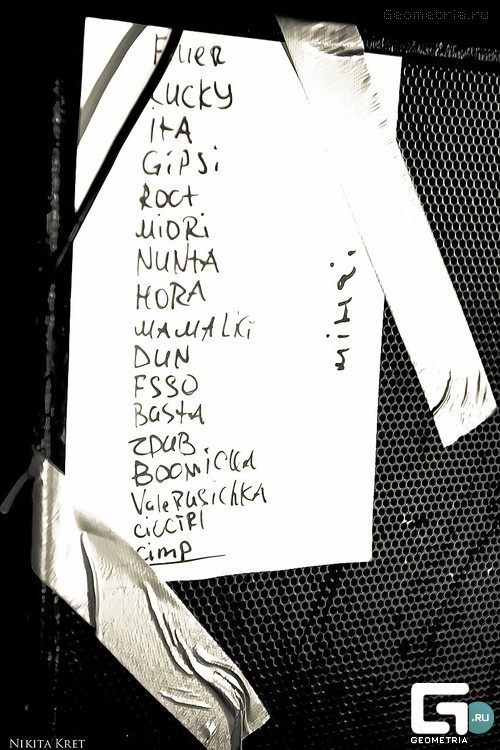 Geometria.ru
LUCKY
iTA
GiPSi
ROCT
MiORi
NUNTA
HORA
MAMALiGi
DUN
FSSO
BASTA
ZDUB
BOOMiCKA
ValeRUSiCHKA
CiCCTRI
Cimp
NIKITA KRET
G .RU
GEOMETRIA